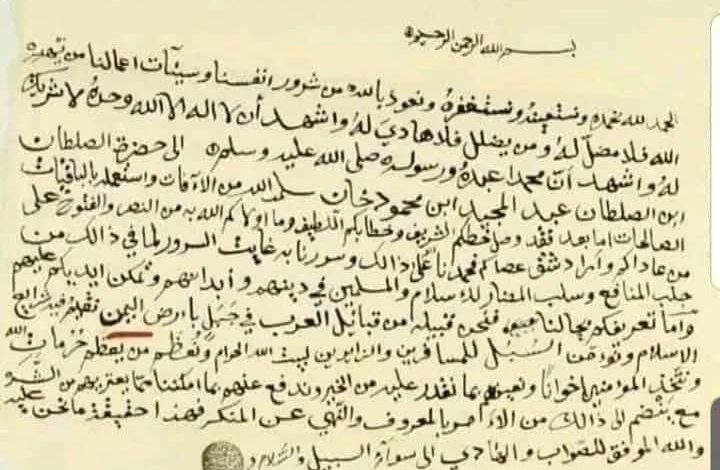 بسم الله الرحمن الرحيم
الحمد لله نحمده ونستعينه ونستغفره ونعوذ بالله من شرور انفسنا وسيئات اعمالنا من يهده
الله فلا مضل له ومن يضلل فلا هادي له واشهد أن لا اله الا الله وحده لا شريك
له واشهد ان محمدا عبده ورسوله صلى الله عليه وسلم الى حضرة الصلطان
ابن الصلطان عبد المجيد ابن محمود خان سلمه الله من الآفات واستعمله بالباقيات
الصالحات اما بعد فقد وصل خطكم الشريف وخطابكم اللطيف وما اولاكم الله به من النصر والفتوح على
من عاداكم وشق عصاكم فحمدنا الله على ذالك وسررنا به غايت السرور لما في ذالك من
جلب المنافع وسلب المضار للاسلام والمسلمين في دينهم وأبدانهم وتمكن ايديكم عليهم
واما تعريفكم بحالنا فنحن قبيلة من قبائل العرب في جبل بارض اليمن نقيم فيه شرايع
الاسلام ونؤمن السبل للمسافرين والزايرين لبيت الله الحرام ونعظم من يعظم حرمات الله
ونتخذ المؤمنين اخوانا ونعينهم بما نقدر عليه من الخير وندفع عنهم بما امكننا مما يعتريهم من الشر
مع ينضم الى ذالك من الامر بالمعروف والنهي عن المنكر فهذا حقيقة ما نحن عليه
والله الموفق للصواب والهادي الى سوآء السبيل والسلام